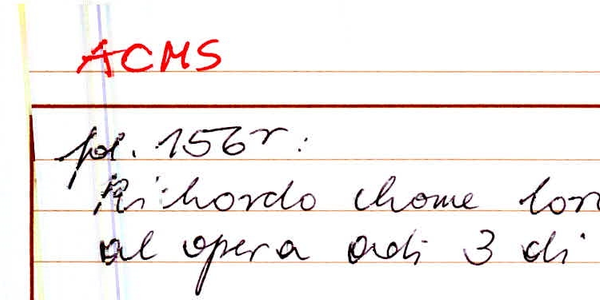 ACMS
fol. 156r:
Richordo chome lor
al opera adi 3 di